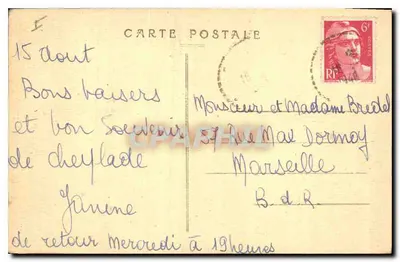 CARTE POSTALE
15 Aout
Bons baisers
et bon Souvenir
de cheylade
Janine
de retour Mercredi à 19 heures
Monsieur et Madame
37 Rue Mal Dormoy
Marseille
B.d.R.
6F
RF